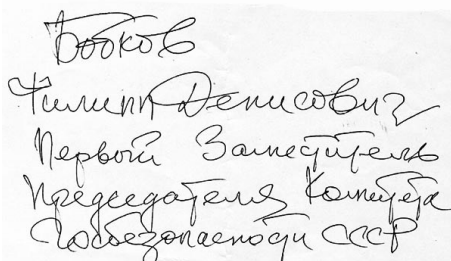 Бобков
Филипп Денисович
Первый Заместитель
Председателя Комитета
Госбезопасности СССР